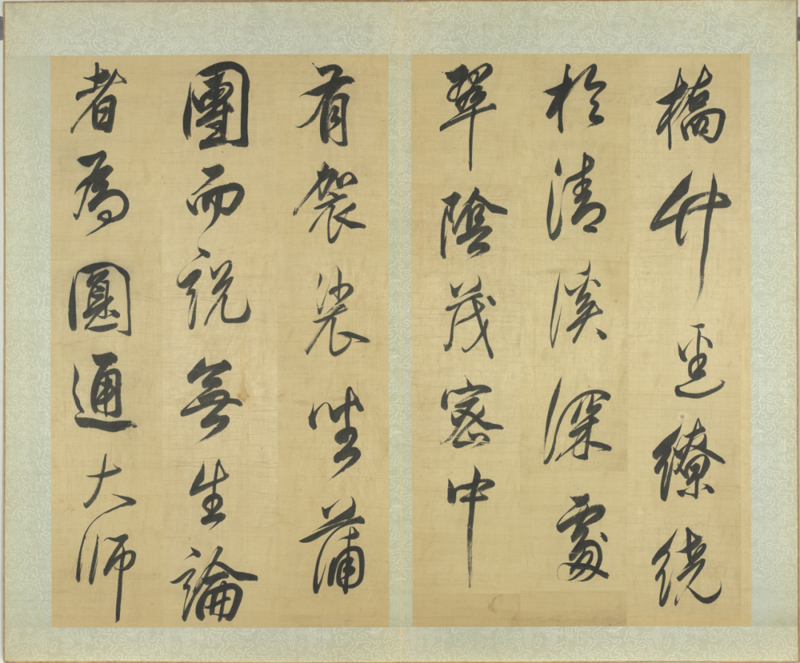 橋竹逕繚繞
於清溪深處
翠陰茂密中
有袈裟坐蒲
團而說無生論
者為圓通大師